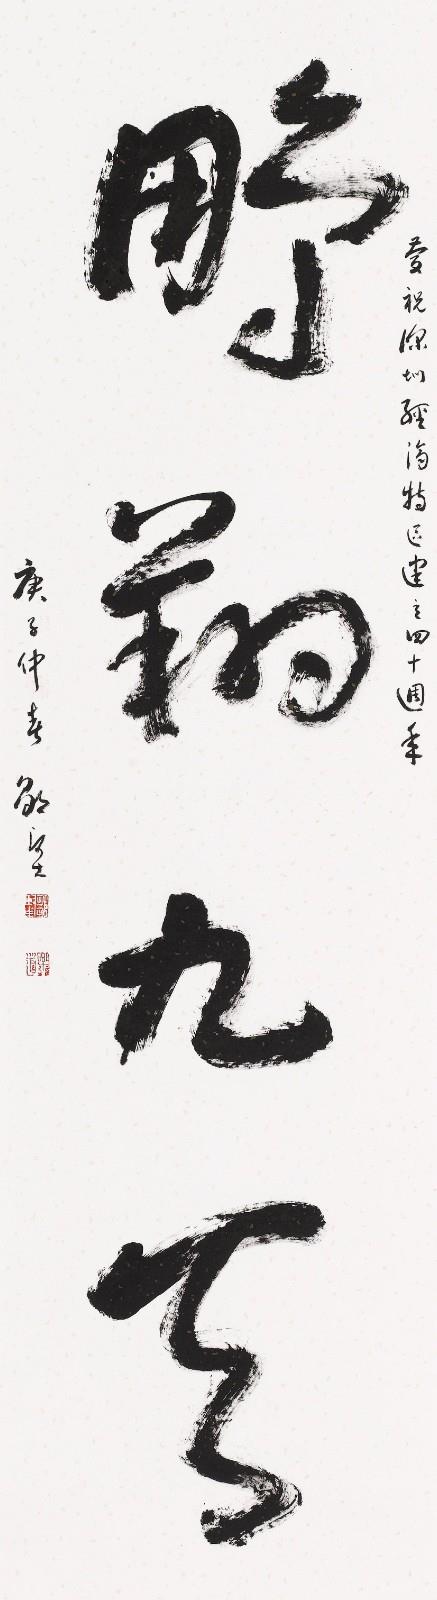 庆祝深圳经济特区建立四十週年
鹏翔九天
庚子仲春